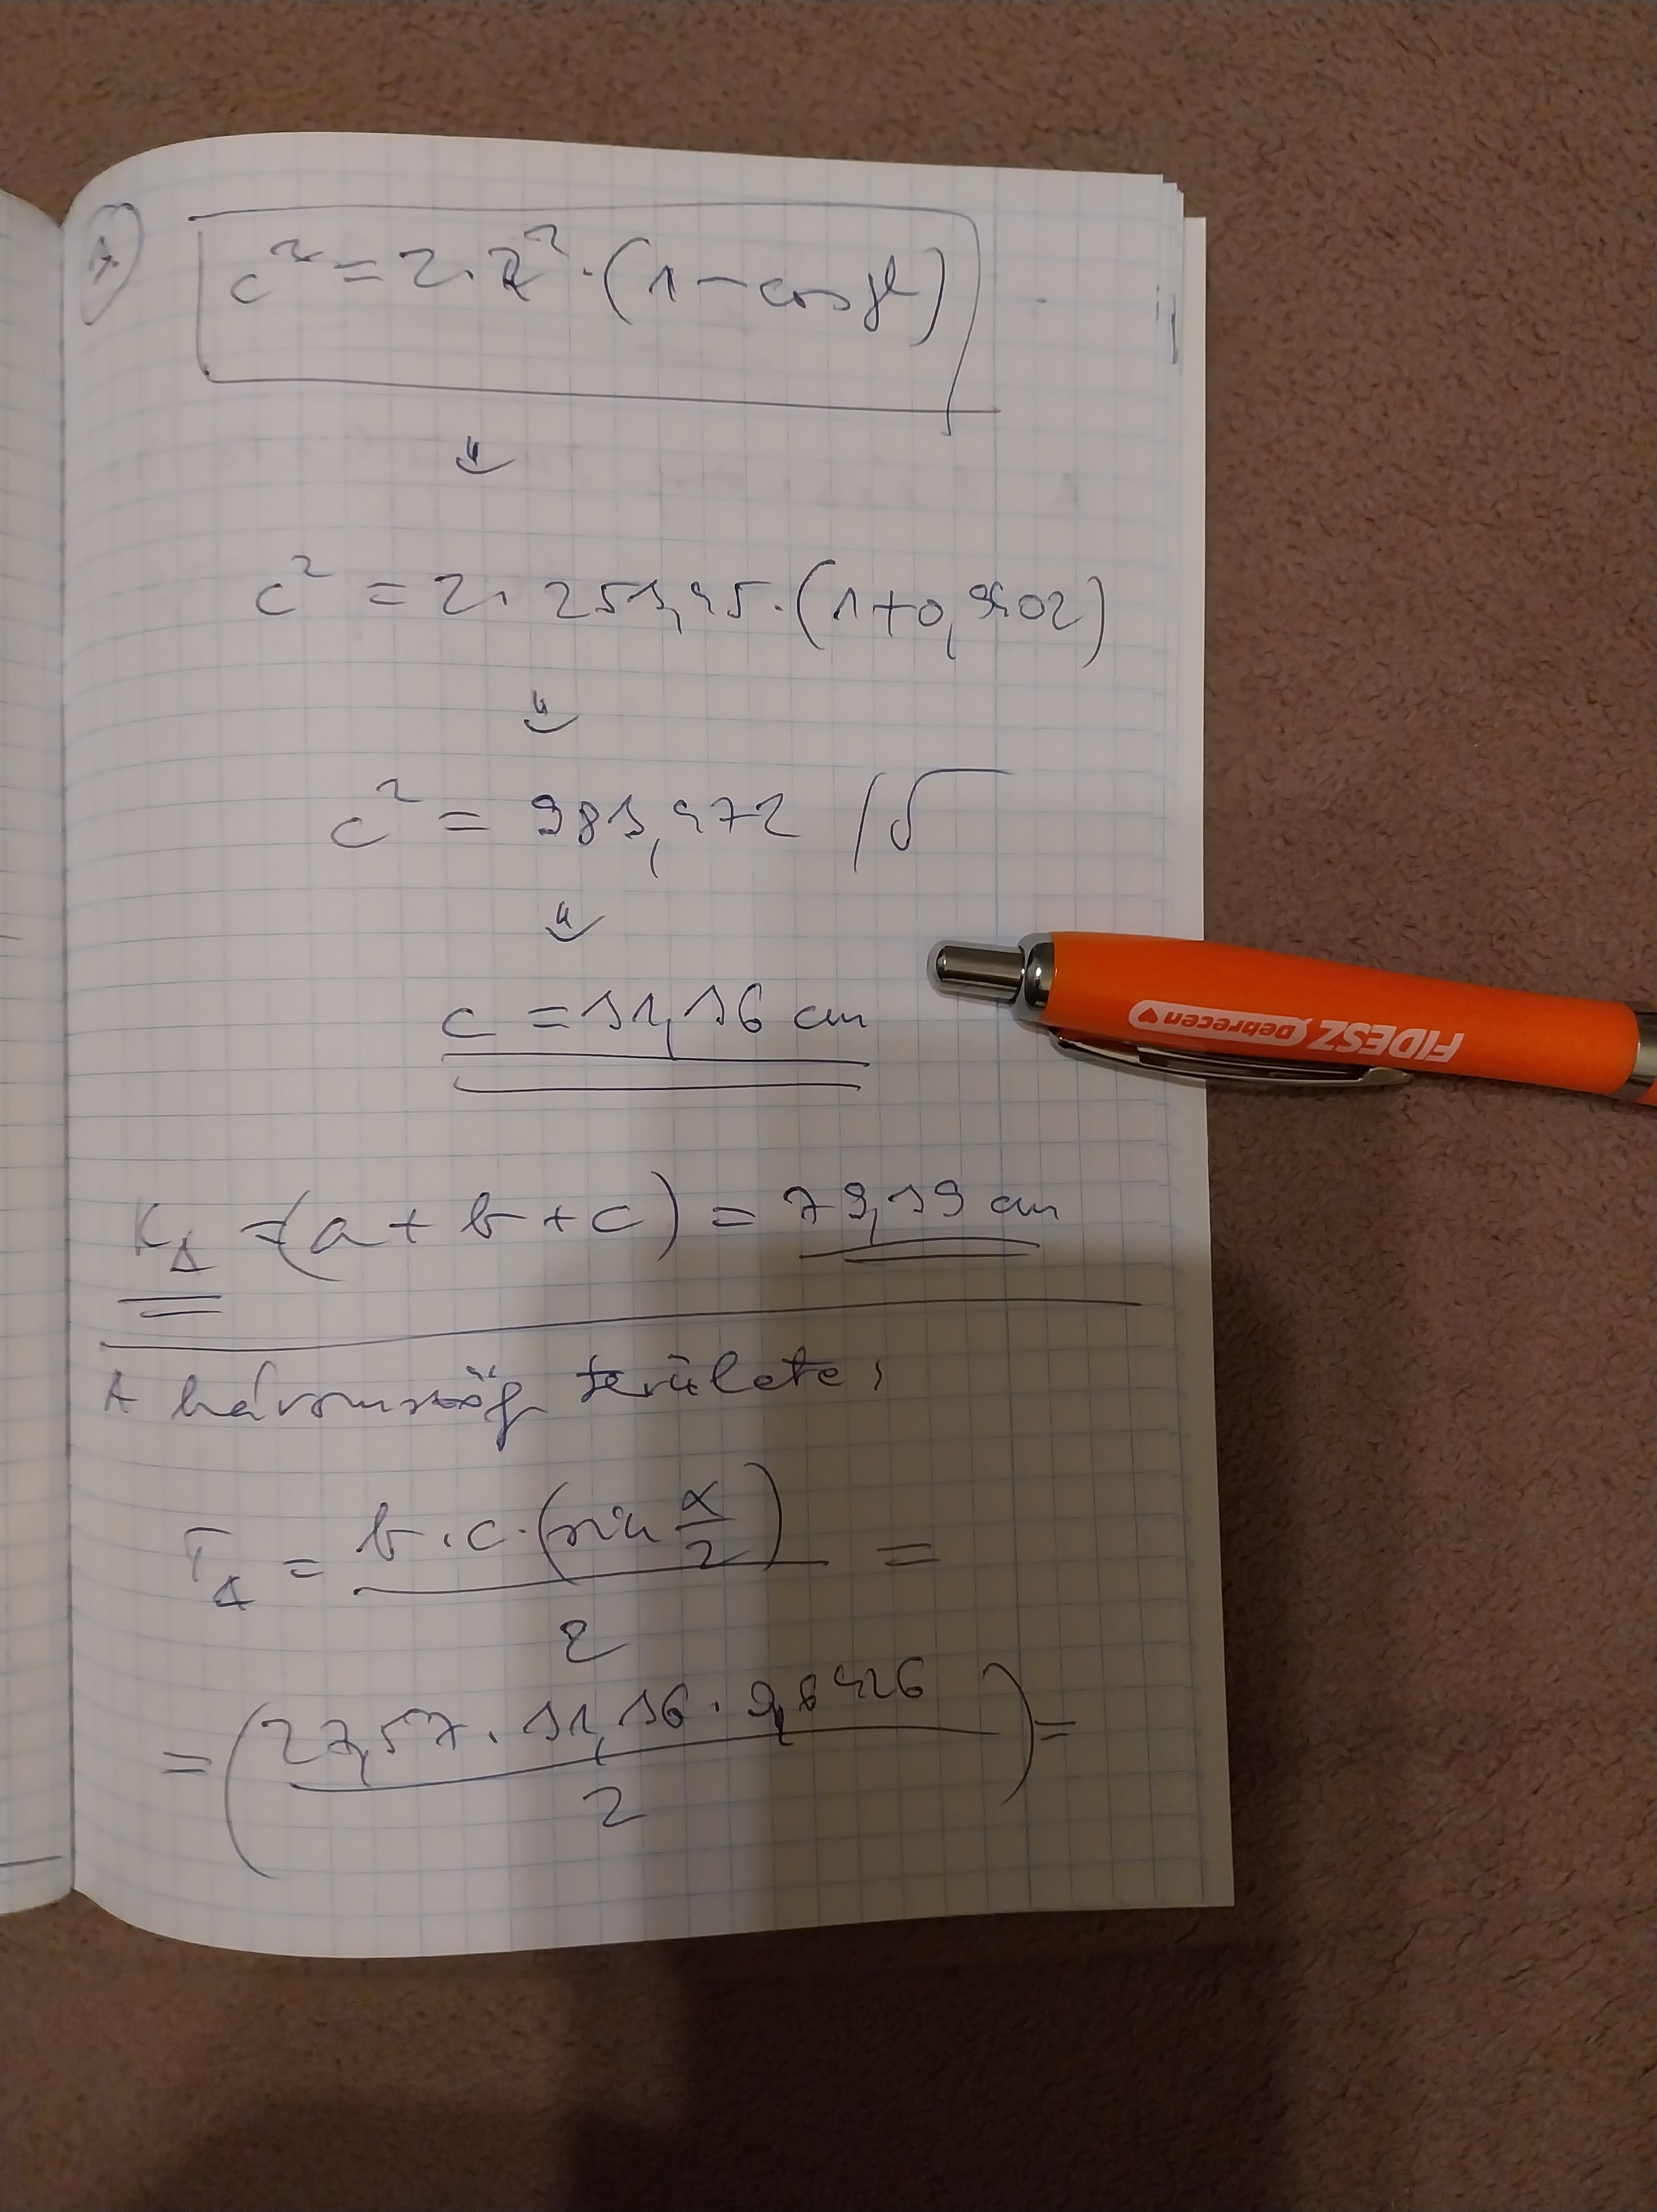 A
c² = 2·R²·(1−cosγ)
⇓
c² = 2·253,45·(1+0,9402)
⇓
c² = 983,472 /√
⇓
c = 31,36 cm
K△ = (a+b+c) = 79,39 cm
A háromszög területe:
T△ = b·c·(sin α/2) / 2 =
= (27,57·31,36·0,6426 / 2) =
FIDESZ Debrecen